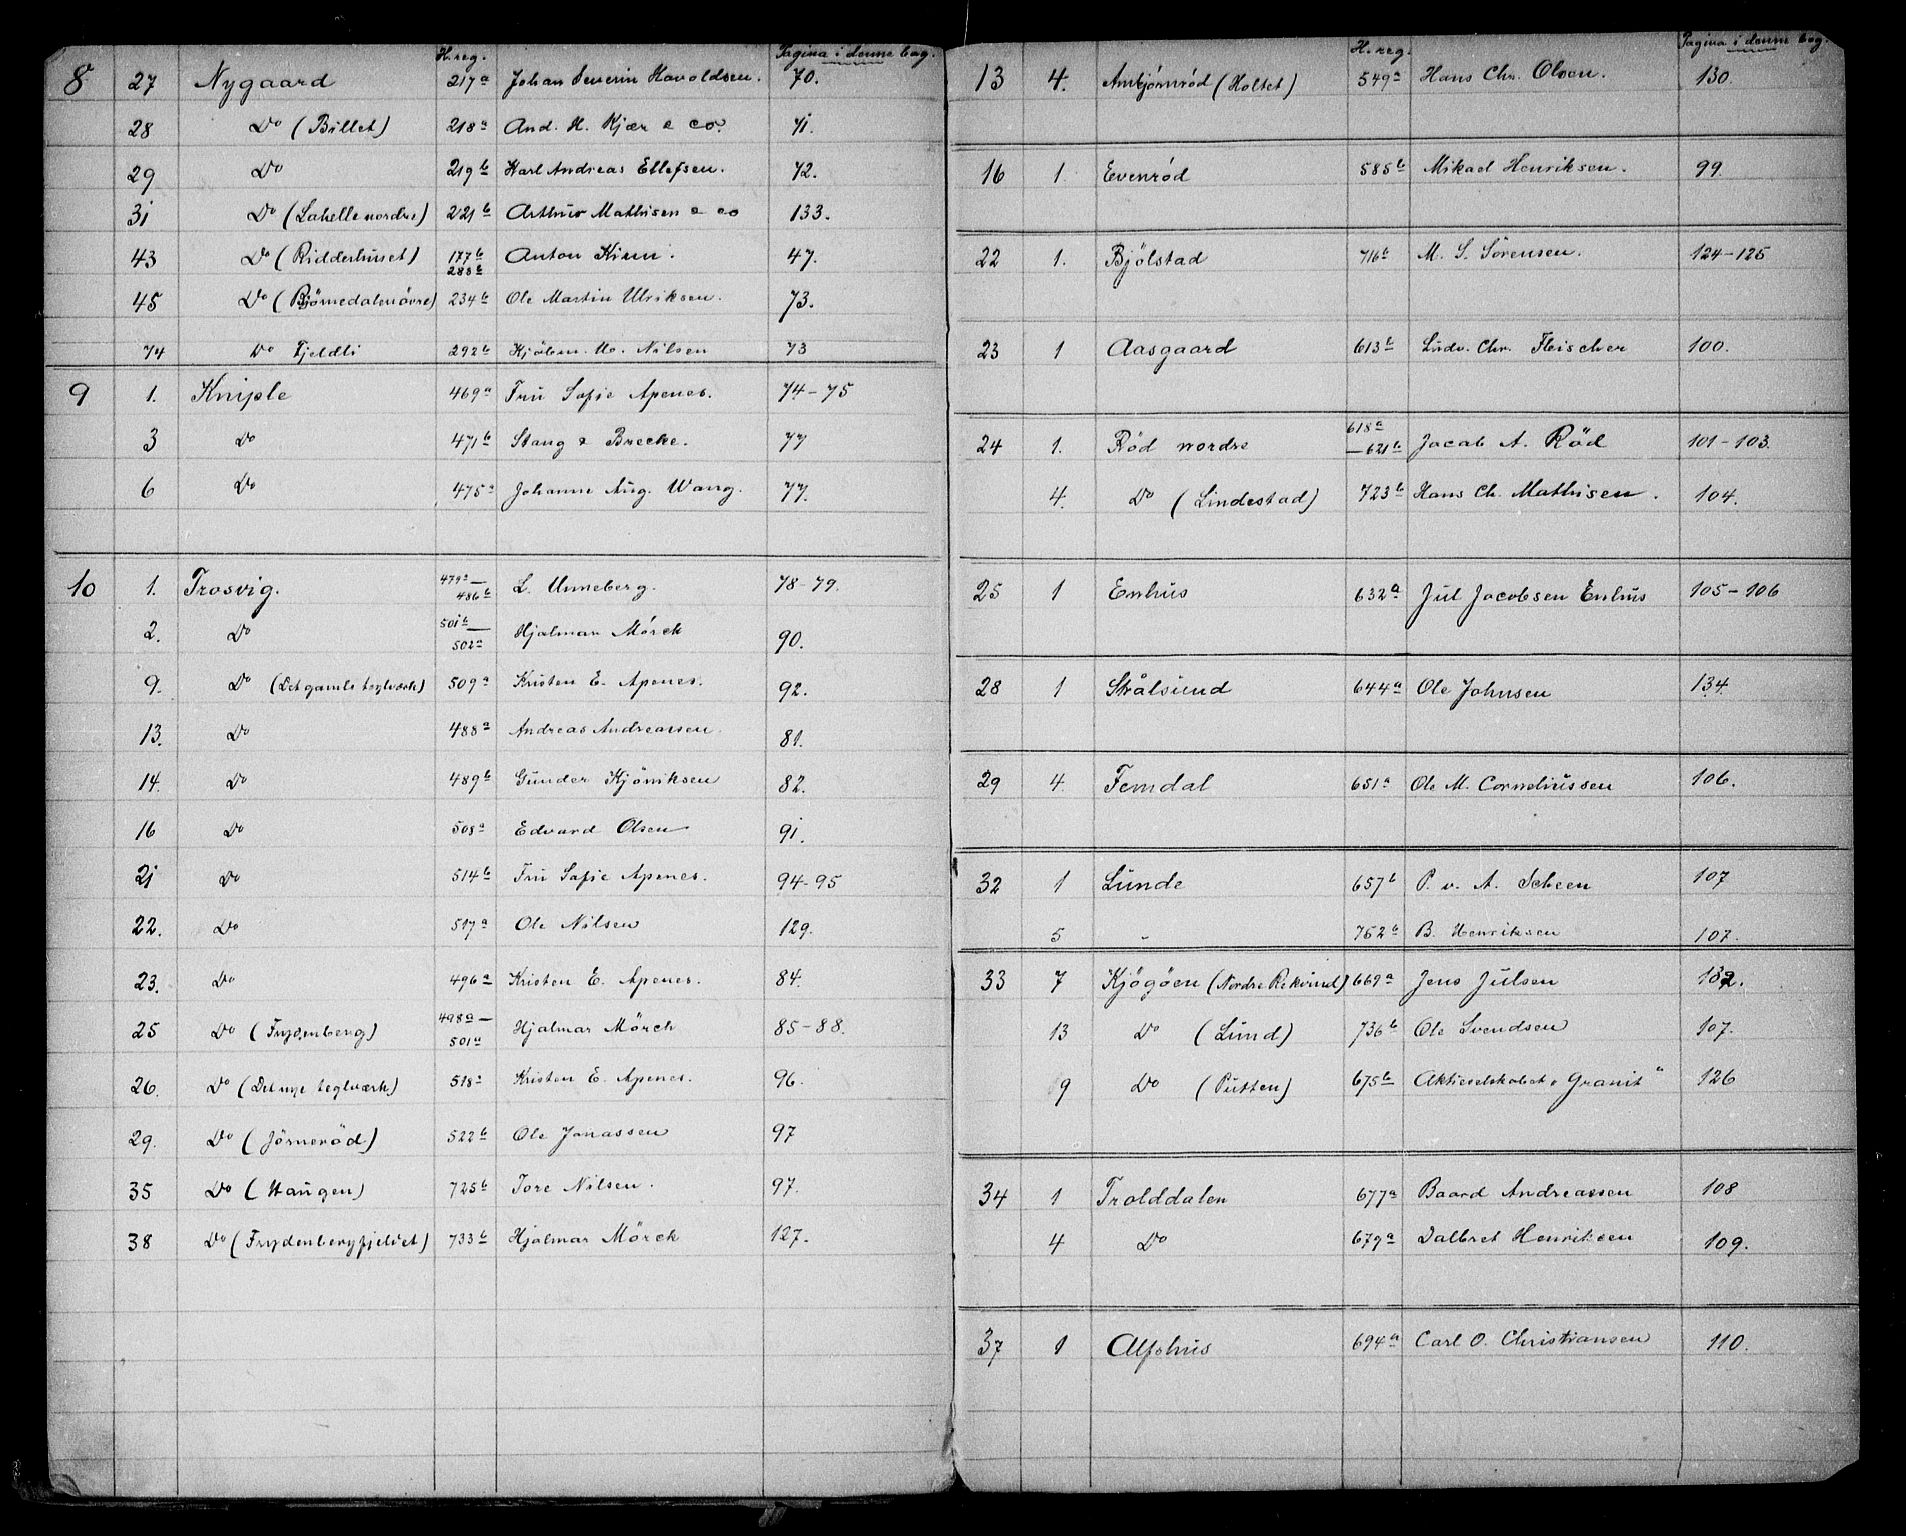 H.reg. Pagina i denne bog.
8 27 Nygaard 217a Johan Severin Havoldsen. 70.
28 Do (Billet) 218a And. H. Kjær & co. 71.
29 Do 219b Karl Andreas Ellefsen. 72.
31 Do (Lahelle nordre) 221b Arthur Mathisen & co 133.
43 Do (Ridderhuset) 177b 288b Anton Kinn. 47.
45 Do (Björnedalen övre) 234b Ole Martin Ulriksen. 73.
74 Do Fjeldli 292b Nilsen 73
9 1. Kniple 469a Fru Sofie Apenes. 74-75
3 Do 471b Stang & Brecke. 77
6 Do 475a Johanne Aug. Wang. 77.
10 1. Trosvig. 479a — 486b L. Unneberg. 78-79.
2. Do 501b — 502a Hjalmar Mörck 90.
9. Do (Det gamle teglværk) 509a Kristen E. Apenes. 92.
13. Do 488a Andreas Andreassen. 81.
14. Do 489b Gunder Kjöniksen 82.
16 Do 508a Edvard Olsen 91.
21 Do 514b Fru Sofie Apenes. 94-95
22. Do 517a Ole Nilsen 129.
23. Do 496a Kristen E. Apenes. 84.
25 Do (Frydenberg) 498a — 501a Hjalmar Mörck 85-88.
26. Do (Det nye teglværk) 518a Kristen E. Apenes. 96.
29. Do (Jörneröd) 522b Ole Jonassen 97
35 Do (Haugen) 725b Tore Nilsen. 97.
38 Do (Frydenbergfjeldet) 733b Hjalmar Mörck 127.
H.reg. Pagina i denne bog.
13 4. Ambjörnröd (Holtet) 549a Hans Chr. Olsen. 130.
16 1. Evenröd 585b Mikael Henriksen. 99.
22 1. Bjölstad 716b M. S. Sörensen. 124-125
23 1 Aasgaard 613b Ludv. Chr. Fleischer 100.
24 1. Röd nordre 618a — 621b Jacob A. Röd 101-103.
4. Do (Lindestad) 723b Hans Ch. Mathisen. 104.
25 1 Enhus 632a Jul Jacobsen Enhus 105-106
28 1 Strålsund 644a Ole Johnsen 134.
29 4. Femdal 651a Ole M. Corneliussen 106.
32 1 Lunde 657b P. v. A. Scheen 107
5 - 752b B. Henriksen 107.
33 7 Kjögöen (Nordre Rekvind) 669a Jens Julsen 132.
13 Do (Lund) 736b Ole Svendsen 107.
9 Do (Putten) 675b Aktieselskabet „Granit" 126
34 1 Trolddalen 677a Baard Andreassen 108
4 Do 679a Dalbret Henriksen 109.
37 1 Alfshus 694a Carl O. Christiansen 110.